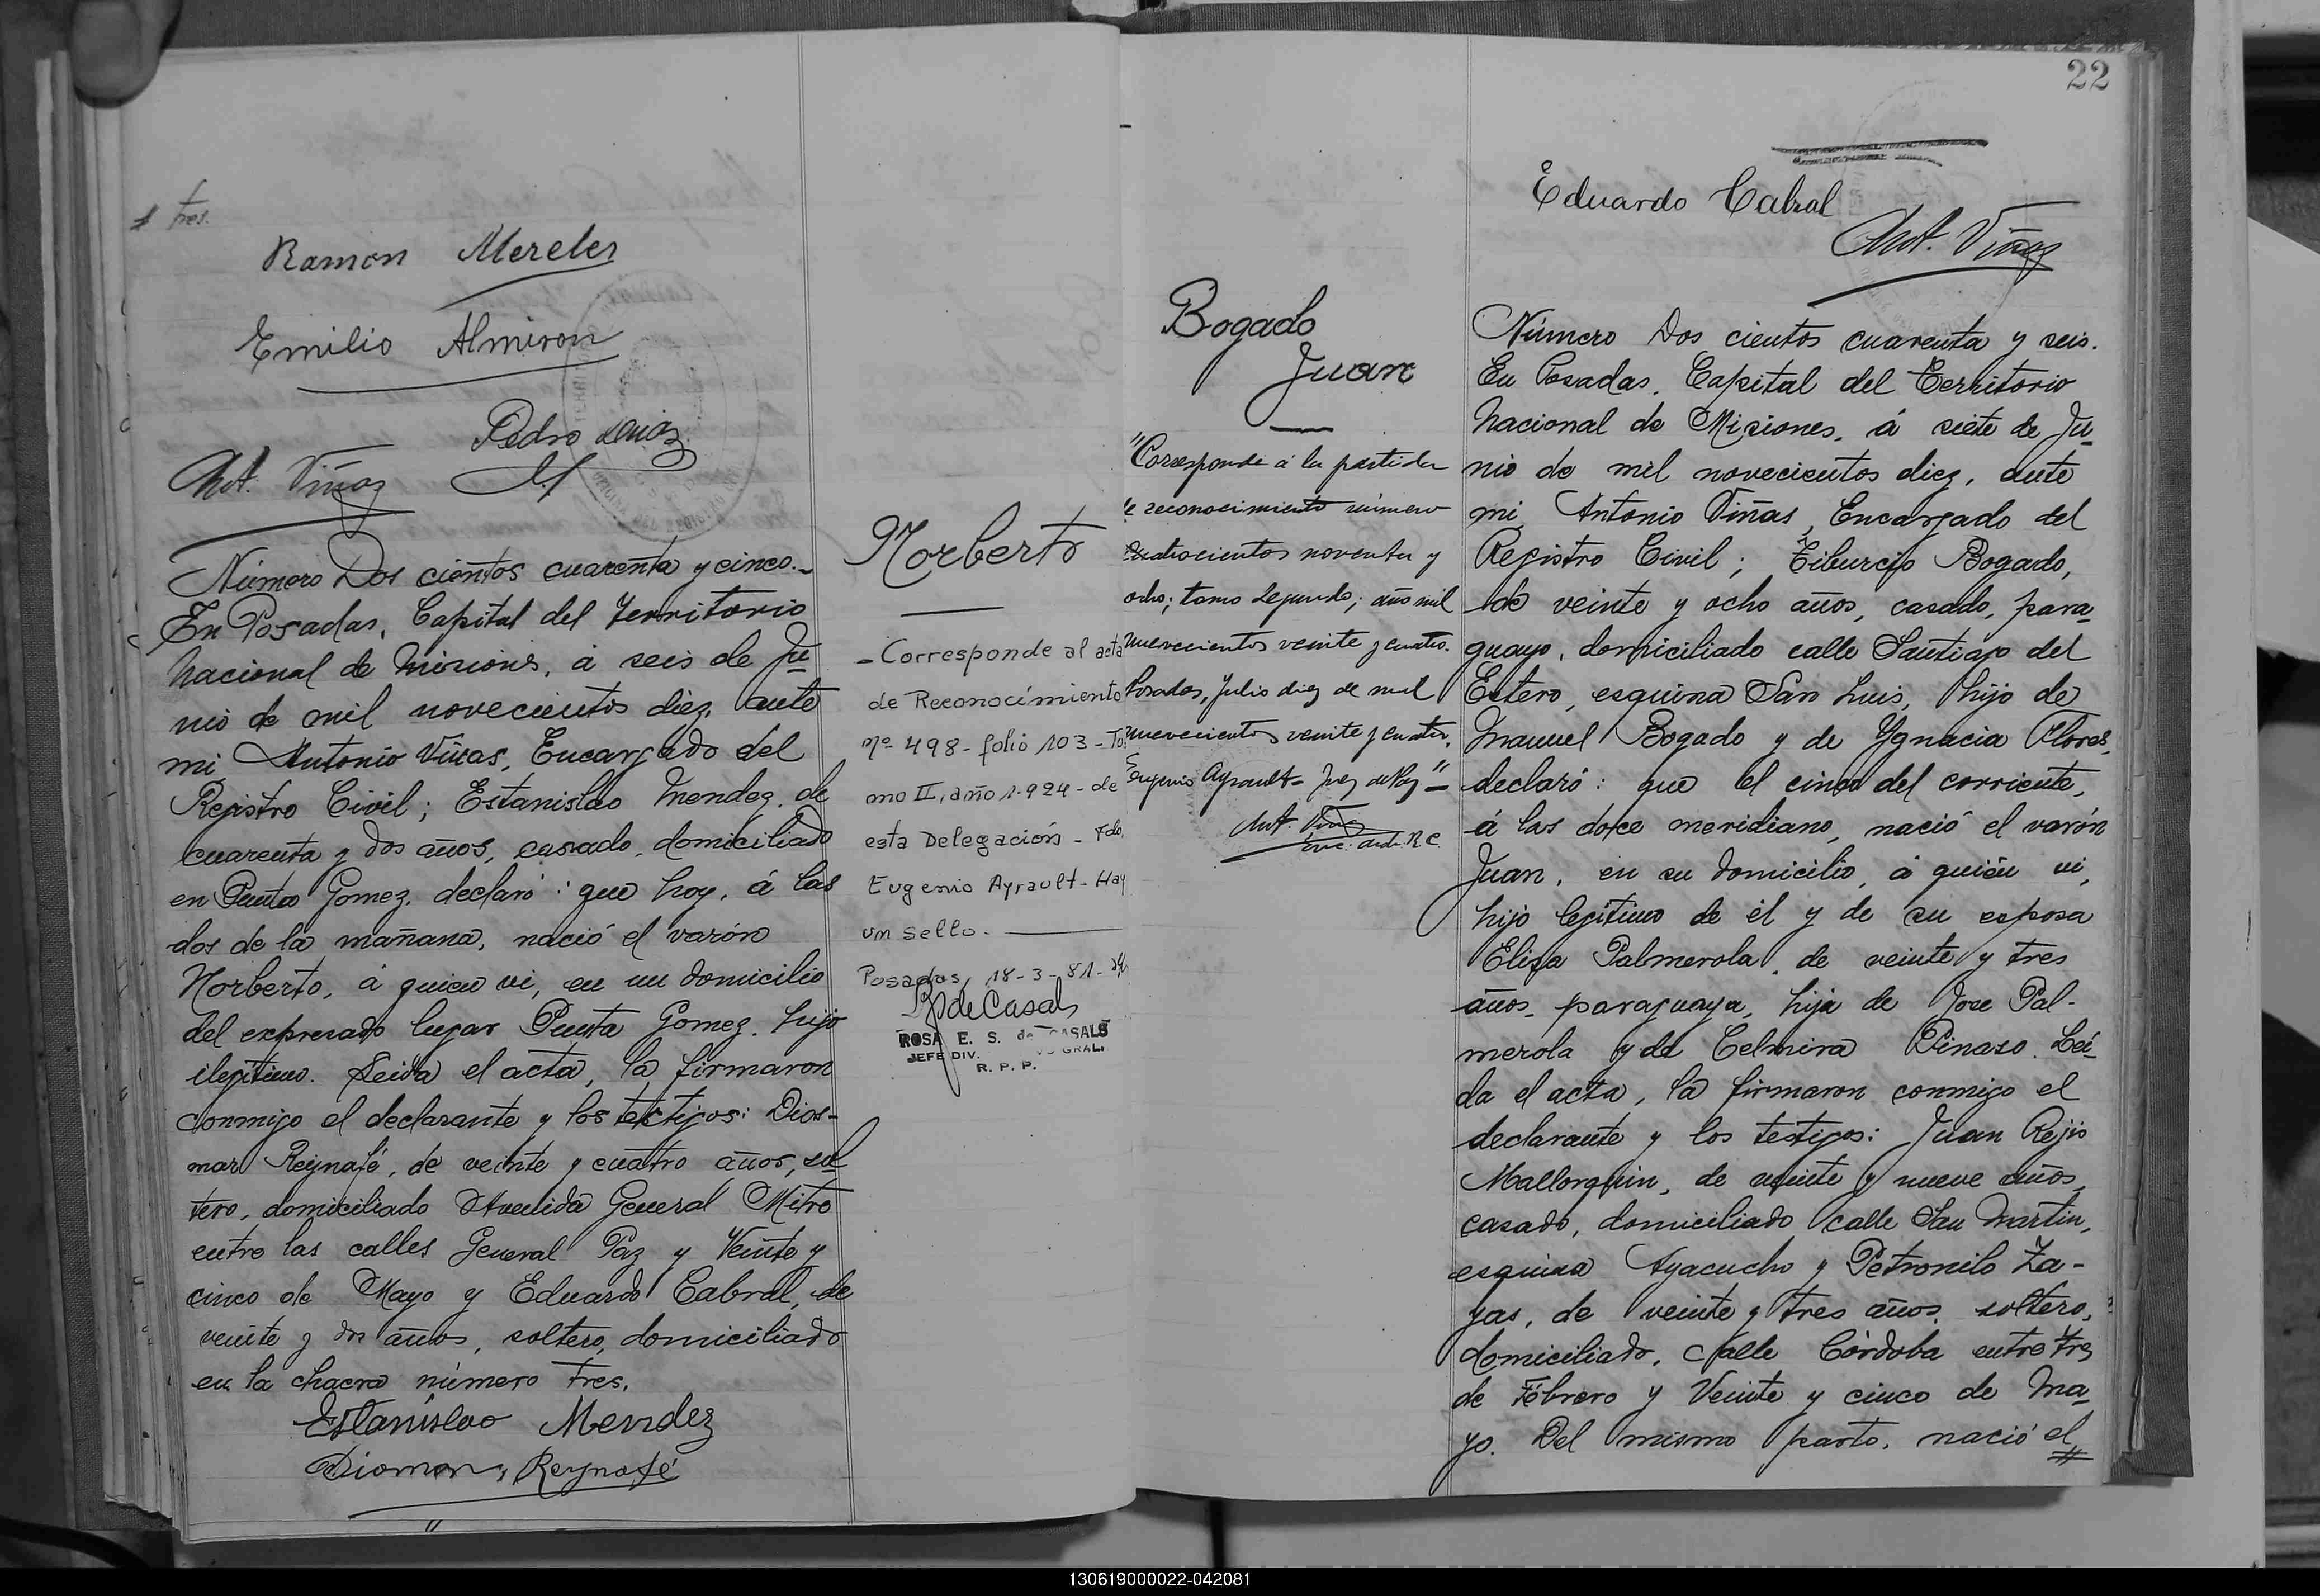 # tres.
Ramon Mereles
Emilio Almiron
Pedro
Ant. Viñas
Número Dos cientos cuarenta y cinco.-
En Posadas, Capital del Territorio
Nacional de Misiones, á seis de Ju-
nio de mil novecientos diez, ante
mi Antonio Viñas, Encargado del
Registro Civil; Estanislao Mendez, de
cuarenta y dos años, casado, domiciliado
en Punta Gomez, declaró: que hoy, á las
dos de la mañana, nació el varón
Norberto, á quien vi, en su domicilio
del expresado lugar Punta Gomez. hijo
ilegitimo. Leida el acta, la firmaron
conmigo el declarante y los testigos: Dios-
mar Reynafé, de veinte y cuatro años, sol
tero, domiciliado Avenida General Mitre
entre las calles General Paz y Veinte y
cinco de Mayo y Eduardo Cabral, de
veinte y dos años, soltero, domiciliado
en la chacra número tres.
Estanislao Mendez
Diosmar Reynafé
"
Norberto
- Corresponde al acta
de Reconocimiento
nº 498 - folio 103 - To-
mo II, año 1.924 - de
esta Delegación - Fdo.
Eugenio Ayrault - Hay
un sello.
Posadas, 18-3-81-
R de Casals
ROSA E. S. de CASALS
JEFE DIV. GRAL.
R. P. P.
22
Eduardo Cabral
Ant. Viñas
Bogado
Juan
"Corresponde á la partida
de reconocimiento número
cuatrocientos noventa y
ocho; tomo segundo; año mil
nuevecientos veinte y cuatro.
Posadas, Julio diez de mil
nuevecientos veinte y cuatro.
Eugenio Ayrault - Juez de Paz" -
Ant. Viñas
Enc. R. C.
Número Dos cientos cuarenta y seis.
En Posadas, Capital del Territorio
Nacional de Misiones, á siete de Ju-
nio de mil novecientos diez, ante
mi, Antonio Viñas, Encargado del
Registro Civil; Tiburcio Bogado,
de veinte y ocho años, casado, para-
guayo, domiciliado calle Santiago del
Estero, esquina San Luis, hijo de
Manuel Bogado y de Ygnacia Flores,
declaró: que el cinco del corriente,
á las doce meridiano, nació el varón
Juan, en su domicilio, á quién vi,
hijo legítimo de él y de su esposa
Elisa Palmerola, de veinte y tres
años, paraguaya, hija de Jose Pal-
merola y de Celmira Pinaso. Leí-
da el acta, la firmaron conmigo el
declarante y los testigos: Juan Rejis
Mallorquin, de veinte y nueve años,
casado, domiciliado calle San Martin,
esquina Ayacucho y Petronilo Za-
yas, de veinte y tres años, soltero,
domiciliado, calle Córdoba entre tres
de Febrero y Veinte y cinco de Ma-
yo. Del mismo parto, nació el
#
130619000022-042081